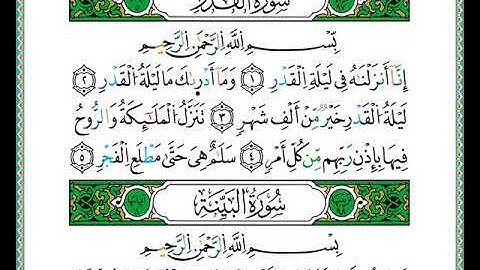 سُورَةُ الْقَدْرِ
بِسْمِ اللَّهِ الرَّحْمَٰنِ الرَّحِيمِ
إِنَّا أَنزَلْنَٰهُ فِى لَيْلَةِ الْقَدْرِ ١ وَمَا أَدْرَىٰكَ مَا لَيْلَةُ الْقَدْرِ ٢
لَيْلَةُ الْقَدْرِ خَيْرٌ مِّنْ أَلْفِ شَهْرٍ ٣ تَنَزَّلُ الْمَلَٰٓئِكَةُ وَالرُّوحُ
فِيهَا بِإِذْنِ رَبِّهِم مِّن كُلِّ أَمْرٍ ٤ سَلَٰمٌ هِىَ حَتَّىٰ مَطْلَعِ الْفَجْرِ ٥
سُورَةُ الْبَيِّنَةِ
بِسْمِ اللَّهِ الرَّحْمَٰنِ الرَّحِيمِ